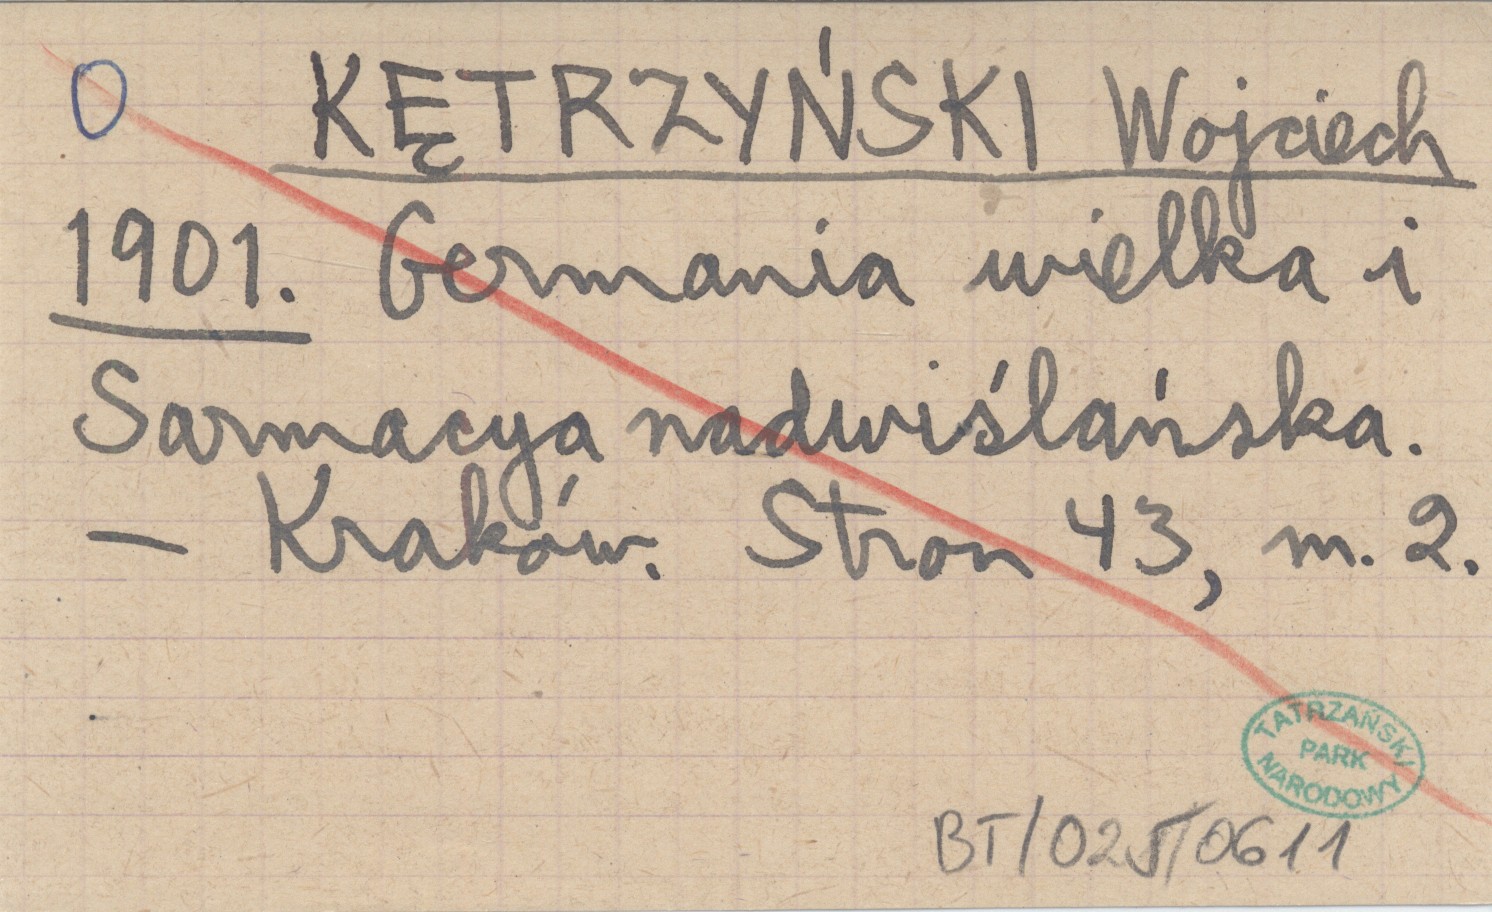 0 KĘTRZYŃSKI Wojciech
1901. Germania wielka i
Sarmacya nadwiślańska.
— Kraków. Stron 43, m. 2.
TATRZAŃSKI
PARK
NARODOWY
BT/025/0611